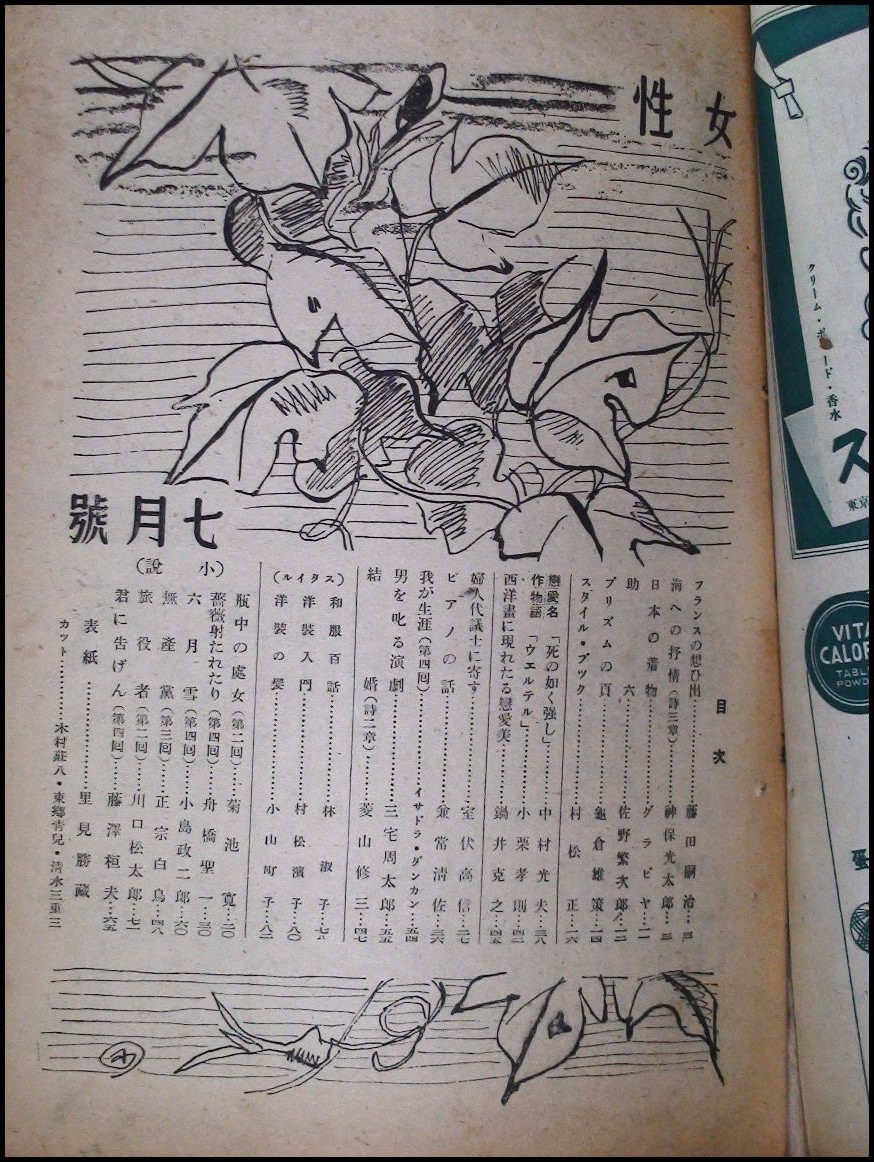 女性
七月號
目次
フランスの想ひ出………藤田嗣治…三
海への抒情(詩三章)………神保光太郎…三
日本の着物………グラビヤ…一一
助六………佐野繁次郎…一二
プリズムの頁………龜倉雄策…一四
スタイル・ブック………村松正…一六
戀愛名作物語
「死の如く强し」………中村光夫…三八
「ウエルテル」………小栗孝則…四二
西洋畫に現れたる戀愛美………鍋井克之…四五
婦人代議士に寄す………室伏高信…二七
ピアノの話………兼常清佐…三六
我が生涯(第四回)………イサドラ・ダンカン…五四
男を叱る演劇………三宅周太郎…五五
結婚(詩二章)………菱山修三…四七
(スタイル)
和服百話………林淑子…七八
洋裝入門………村松濱子…八〇
洋裝の髮………小山町子…八二
(小說)
瓶中の處女(第二回)…菊池寬…二〇
薔薇射たれたり(第四回)……舟橋聖一…三〇
六月雪(第四回)……小島政二郎…六〇
無產黨(第三回)……正宗白鳥…四八
旅役者(第二回)……川口松太郎…七一
君に告げん(第四回)……藤澤桓夫…六五
表紙………里見勝藏
カット………木村莊八・東鄕靑兒・清水三重三
クリーム・ポマード・香水
ス
東京
VITA
CALOR
TABL
POWD